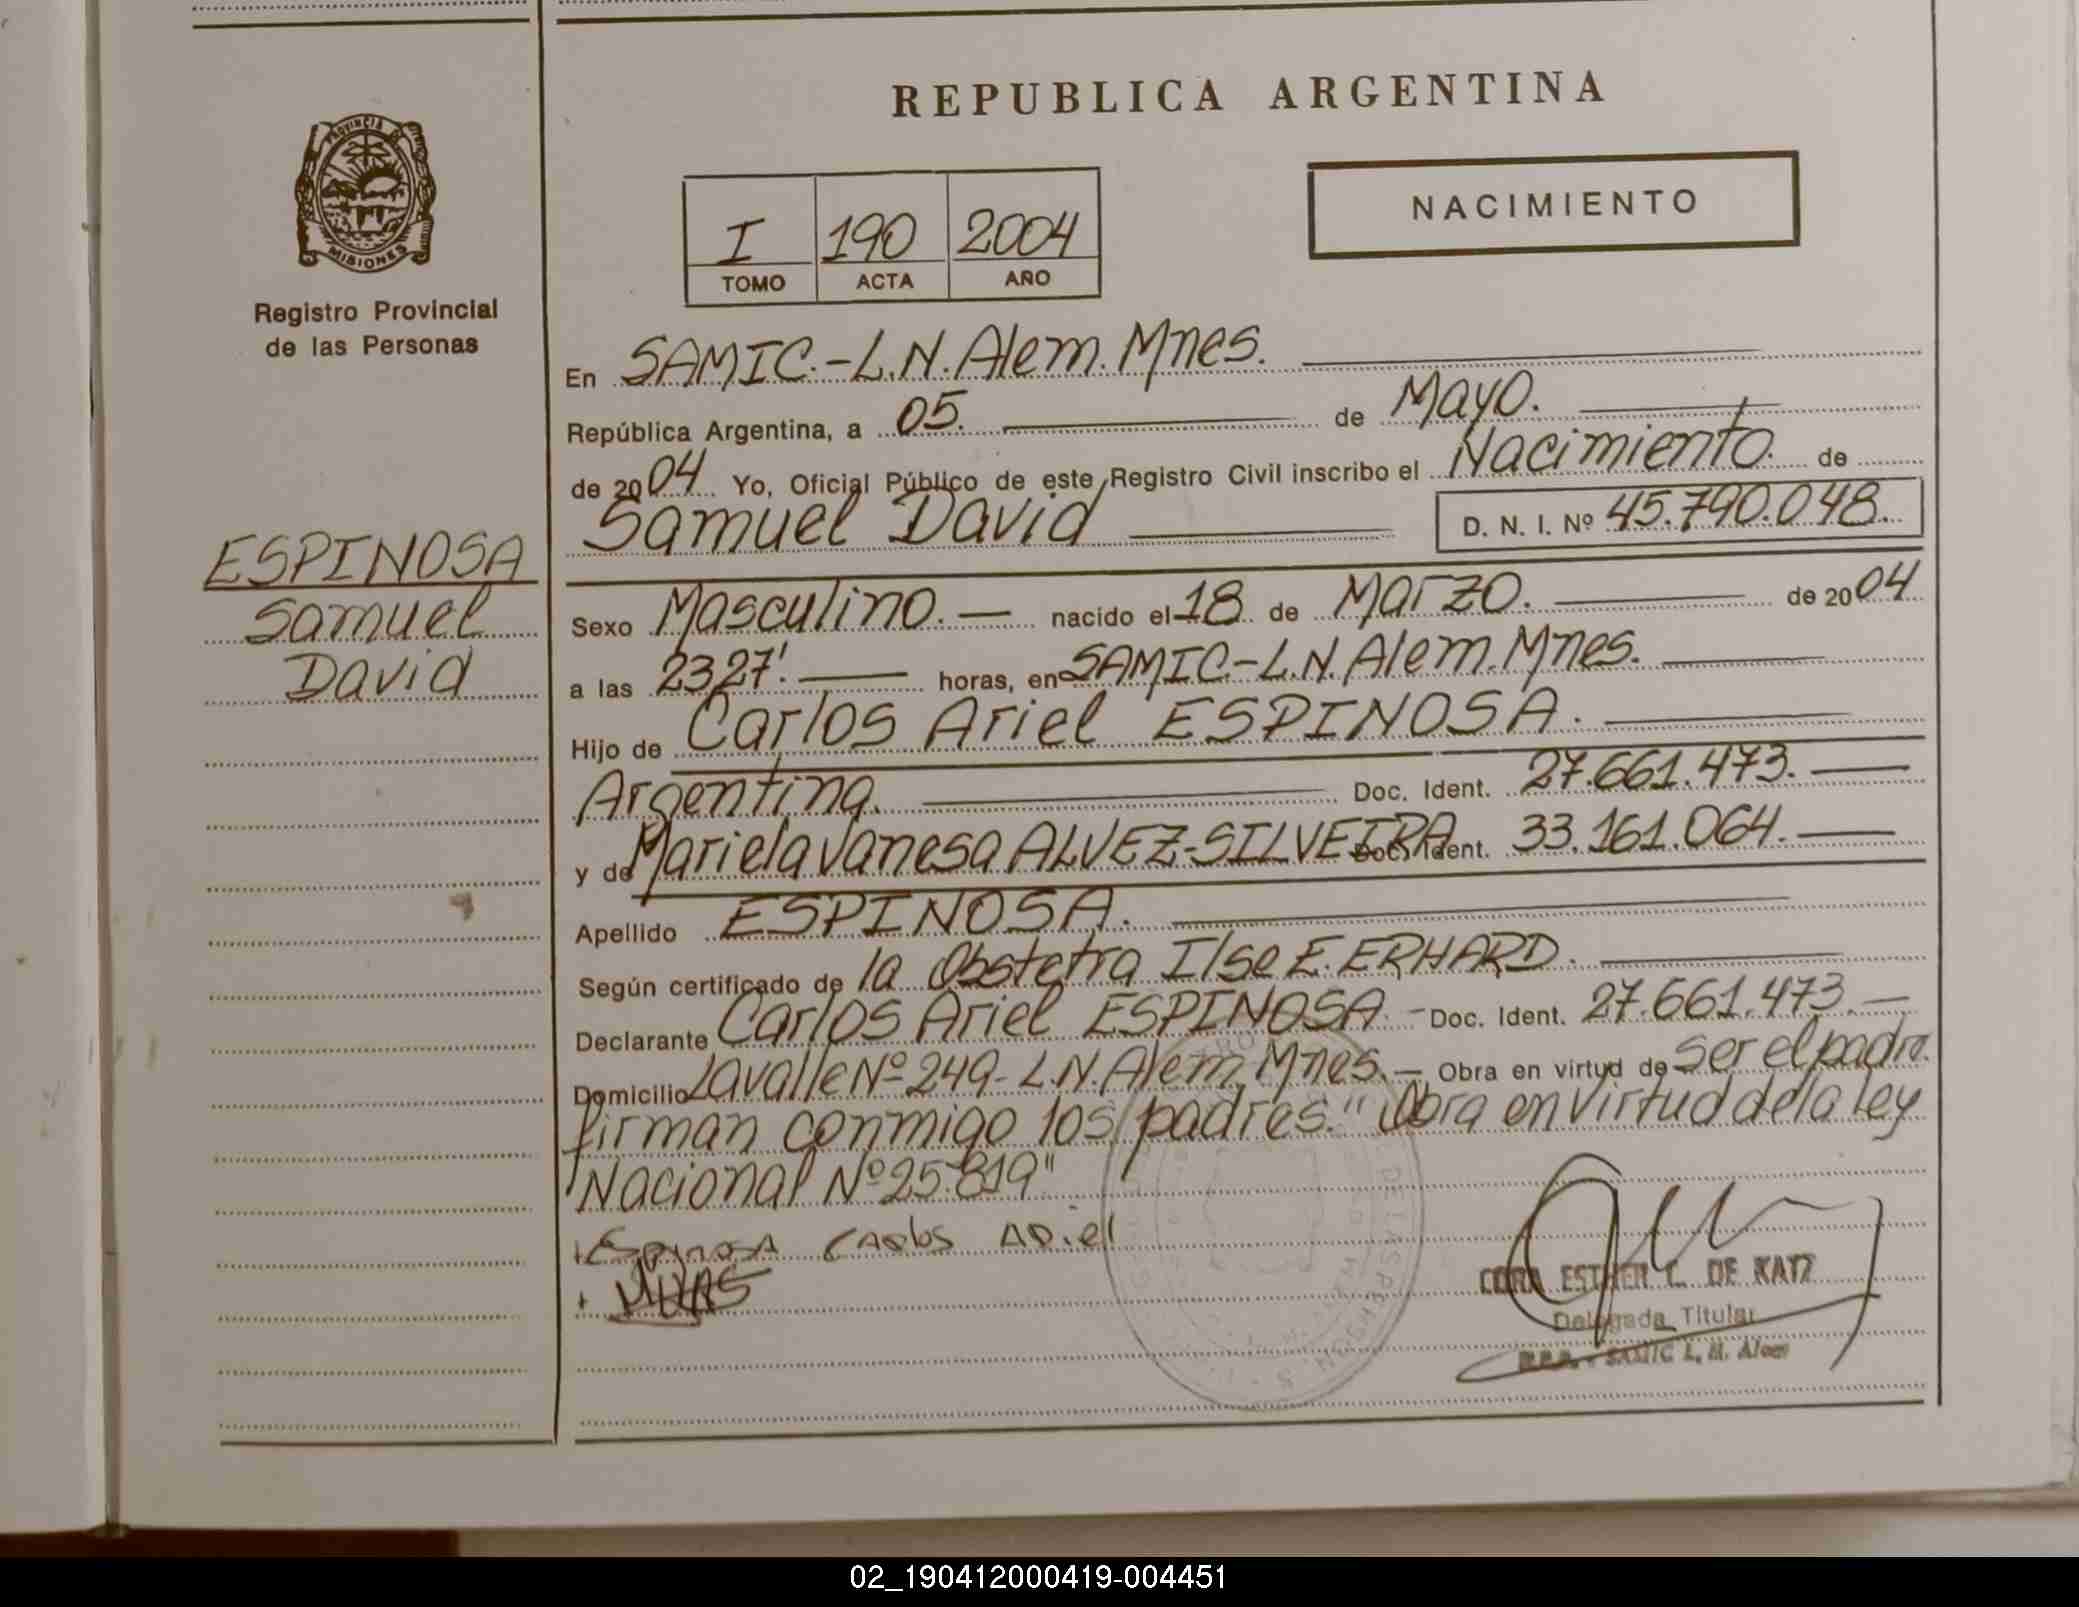 REPUBLICA ARGENTINA
PROVINCIA DE
MISIONES
Registro Provincial
de las Personas
NACIMIENTO
I 190 2004
TOMO ACTA AÑO
En SAMIC.-L.N.Alem.Mnes.
República Argentina, a 05. de Mayo.
de 2004 Yo, Oficial Público de este Registro Civil inscribo el Nacimiento. de
Samuel David D. N. I. Nº 45.790.048.
ESPINOSA
Samuel
David
Sexo Masculino.— nacido el 18 de Marzo. de 2004
a las 2327'. horas, en SAMIC-L.N.Alem.Mnes.
Hijo de Carlos Ariel ESPINOSA.
Argentina. Doc. Ident. 27.661.473.
y de Mariela Vanesa ALVEZ-SILVEIRA Doc. Ident. 33.161.064.
Apellido ESPINOSA.
Según certificado de la Obstetra Ilse E. ERHARD.
Declarante Carlos Ariel ESPINOSA - Doc. Ident. 27.661.473.—
Domicilio Lavalle Nº 249- L.N. Alem, Mnes.— Obra en virtud de Ser el padre.
firman conmigo los padres." Obra en Virtud de la ley
Nacional Nº 25.819"
Espinosa Carlos Ariel
CORA ESTHER C. DE KATZ
Delegada Titular
R.P.P. - SAMIC L. N. Alem
02_190412000419-004451